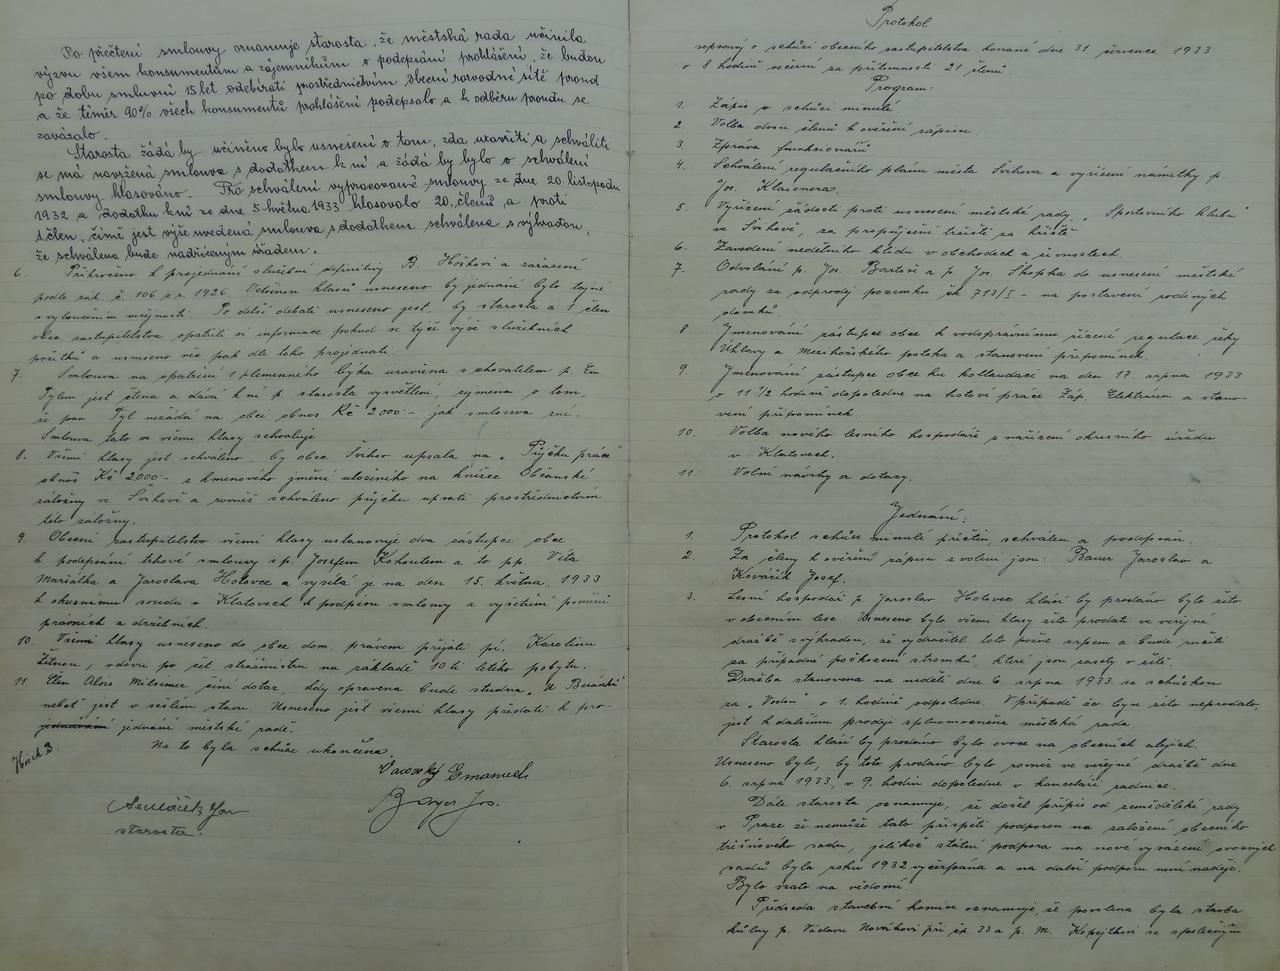 Po přečtení smlouvy oznamuje starosta, že městská rada učinila
výzvu všem konsumentům a zájemníkům o podepsání prohlášení, že budou
po dobu smluvní 15 let odebírati prostřednictvím obecní rozvodné sítě proud
a že téměř 90% všech konsumentů prohlášení podepsalo a k odběru proudu se
zavázalo.
Starosta žádá by učiněno bylo usnesení o tom, zda uzavříti a schváliti
se má navržená smlouva s dodatkem k ní a žádá by bylo o schválení
smlouvy hlasováno. Pro schválení vypracované smlouvy ze dne 20. listopadu
1932 a dodatku k ní ze dne 5. května 1933 hlasovalo 20. členů a proti
1. člen, čímž jest výše uvedená smlouva s dodatkem schválena s výhradou,
že schválena bude nadřízeným úřadem.
6. Přikročeno k projednání služební definitivy B. Hoškovi a zařazení
podle zák. č. 106 z r. 1926. Většinou hlasů usneseno by jednání bylo tajné
s vyloučením veřejnosti. Po delší debatě usneseno jest, by starosta a 1 člen
obec. zastupitelstva opatřili si informace pokud se týče výše služebních
požitků a usneseno věc pak dle toho projednati.
7. Smlouva na opatření 1 plemenného býka uzavřena s chovatelem p. Em
Tylem jest čtena a dává k ní p. starosta vysvětlení, zejména o tom,
že pan Tyl nežádá na obci obnos Kč 2000·- jak smlouva zní.
Smlouva tato se všemi hlasy schvaluje.
8. Všemi hlasy jest schváleno, by obec Švihov upsala na „Půjčku práce"
obnos Kč 2.000·- z kmenového jmění uloženého na knížce Občanské
záložny ve Švihově a rovněž schváleno půjčku upsati prostřednictvím
této záložny.
9. Obecní zastupitelstvo všemi hlasy ustanovuje dva zástupce obce
k podepsání trhové smlouvy s p. Josefem Kohoutem a to pp. Víta
Marjálka a Jaroslava Hotovce a vysílá je na den 15. května 1933
k okresnímu soudu v Klatovech k podpisu smlouvy a vyšetření poměrů
pravních a držebních.
10. Všemi hlasy usneseno do obce dom. právem přijati pí. Karolinu
Žitnou, vdovu po čet. strážmistru na základě 10ti letého pobytu.
11. Člen Alois Milsimer činí dotaz, kdy opravena bude studna „U Beránků"
neboť jest v sešlém stavu. Usneseno jest všemi hlasy předati k pro-
jednávání jednání městské radě.
Na to byla schůze ukončena.
Emanuel
starosta.
Protokol
sepsaný o schůzi obecního zastupitelstva konané dne 31 července 1933
o 8 hodině večerní za přítomnosti 21 členů.
Program:
1. Zápis o schůzi minulé
2. Volba dvou členů k ověření zápisu.
3. Zpráva funkcionářů
4. Schválení regulačního plánu města Švihova a vyřízení námitky p.
Jos. Klausnera.
5. Vyřízení žádosti proti usnesení městské rady „Sportovního klubu"
ve Švihově, za propůjčení tržiště za hřiště
6. Zavedení nedělního klidu v obchodech a živnostech.
7. Odvolání p. Jos. Bartoši a p. Jos. Skopka do usnesení městské
rady za odprodej pozemku čk 713/I - na postavení rodinných
domků.
8 Jmenování zástupce obce k vodoprávnímu řízení regulace řeky
Úhlavy a Mezihořského potoka a stanovení připomínek.
9. Jmenování zástupce obce ku kollaudaci na den 17. srpna 1933
o 11 1/2 hodině dopoledne na hotové práce Záp. Elektráren a stano-
vení připomínek.
10. Volba nového lesního hospodáře z nařízení okresního úřadu
v Klatovech.
11. Volní návrhy a dotazy.
Jednání:
1. Protokol schůze minulé přečten, schválen a podepsán.
2. Za členy k ověření zápisu zvoleni jsou: Bauer Jaroslav a
Kovářík Josef.
3. Lesní hospodář p. Jaroslav Hotovec hlásí by prodáno bylo žito
v obecním lese. Usneseno bylo všemi hlasy žito prodati ve veřejné
dražbě s výhradou, že vydražitel toto požne srpem a bude ručiti
za případné poškození stromků, které jsou zasety v žitě.
Dražba stanovena na neděli dne 6. srpna 1933 se schůzkou
za „Vodou" o 1. hodině odpoledne. V případě že by se žito neprodalo,
jest k dalšímu prodeji splnomocněna městská rada.
Starosta hlásí by prodáno bylo ovoce na obecních alejích.
Usneseno bylo, by toto prodáno bylo rovněž ve veřejné dražbě dne
6. srpna 1933, v 9. hodin dopoledne v kanceláři radnice.
Dále starosta oznamuje, že došel přípis od zemědělské rady
v Praze že nemůže tato přispěti podporou na založení obecního
třešňového sadu, jelikož státní podpora na nové vysázení ovocných
sadů byla roku 1932 vyčerpána a na další podporu není naděje.
Bylo vzato na vědomí.
Předseda stavební komise oznamuje, že povolena byla stavba
kůlny p. Václavu Novákovi při čp. 33 a p. M. Kopejtkovi se společným